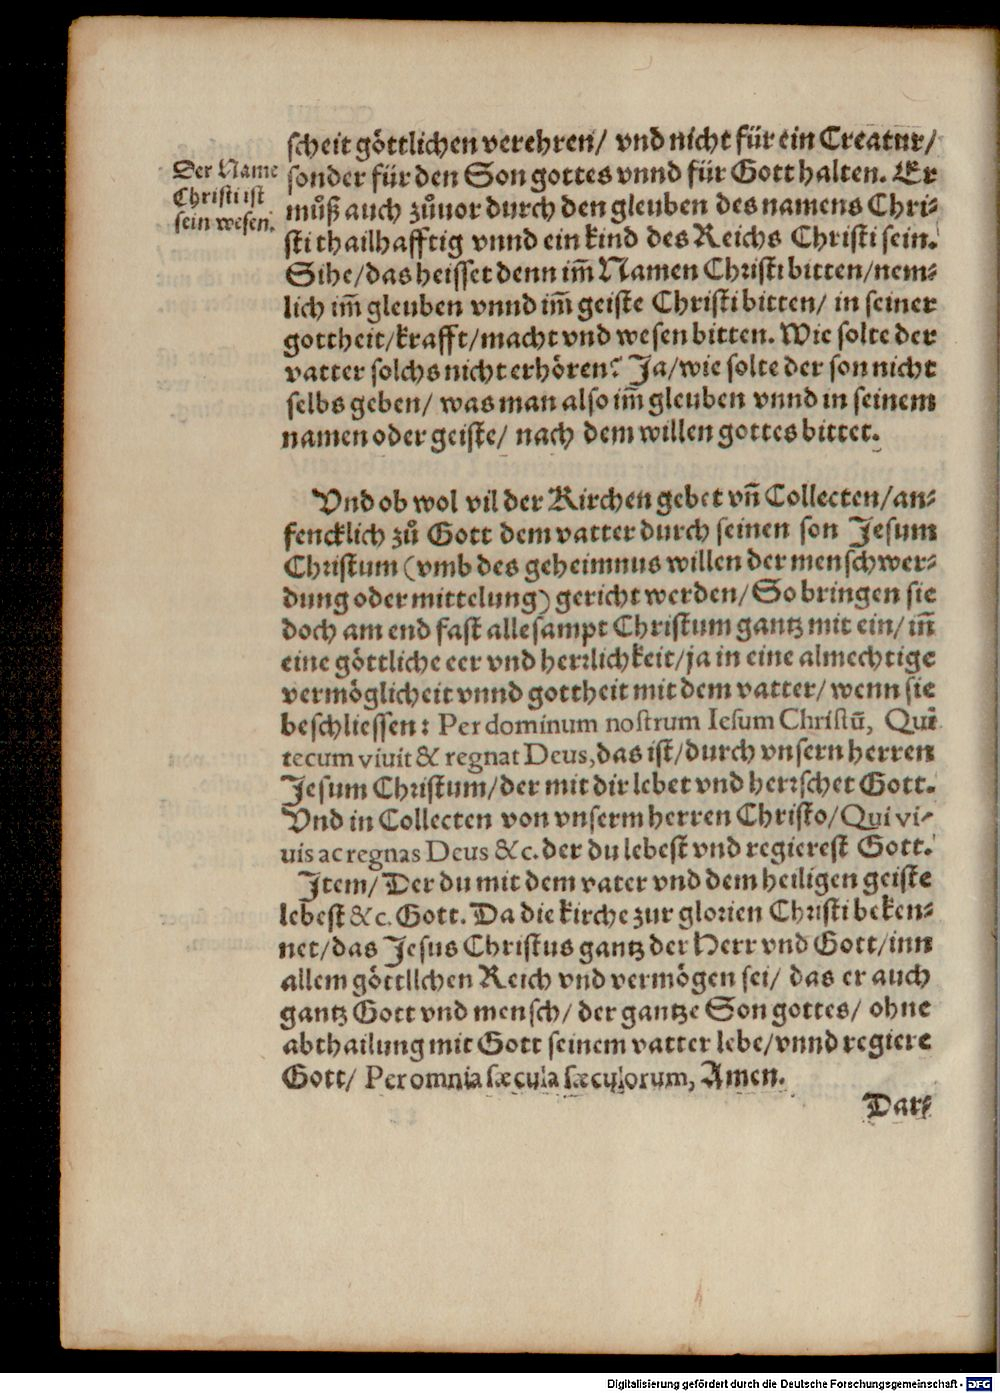 scheit göttlichen verehren/ vnd nicht für ein Creatur/
Der Name
Christi ist
sein wesen.
sonder für den Son gottes vnnd für Gott halten. Er
muͦß auch zuͦuor durch den gleuben des namens Chri⸗
sti thailhafftig vnnd ein kind des Reichs Christi sein.
Sihe/das heisset denn im̄ Namen Christi bitten/nem⸗
lich im̄ gleuben vnnd im̄ geiste Christi bitten/ in seiner
gottheit/krafft/macht vnd wesen bitten. Wie solte der
vatter solchs nicht erhören? Ja/wie solte der son nicht
selbs geben/ was man also im̄ gleuben vnnd in seinem
namen oder geiste/ nach dem willen gottes bittet.
Vnd ob wol vil der Kirchen gebet vn̄ Collecten/an⸗
fencklich zuͦ Gott dem vatter durch seinen son Jesum
Christum (vmb des geheimnus willen der menschwer⸗
dung oder mittelung) gericht werden/ So bringen sie
doch am end fast alle sampt Christum gantz mit ein/ in̄
eine göttliche eer vnd herrlichkeit/ja in eine almechtige
vermöglicheit vnnd gottheit mit dem vatter/ wenn sie
beschliessen: Per dominum nostrum Iesum Christū, Qui
tecum viuit & regnat Deus, das ist/ durch vnsern herren
Jesum Christum/der mit dir lebet vnd herrschet Gott.
Vnd in Collecten von vnserm herren Christo/ Qui vi-
uis ac regnas Deus &c. der du lebest vnd regierest Gott.
Item/ Der du mit dem vater vnd dem heiligen geiste
lebest &c. Gott. Da die kirche zur glorien Christi beken⸗
net/das Jesus Christus gantz der Herr vnd Gott/inn
allem göttlichen Reich vnd vermögen sei/ das er auch
gantz Gott vnd mensch/ der gantze Son gottes/ ohne
abthailung mit Gott seinem vatter lebe/vnnd regiere
Gott/ Per omnia sæcula sæculorum, Amen.
Dar⸗
Digitalisierung gefördert durch die Deutsche Forschungsgemeinschaft - DFG